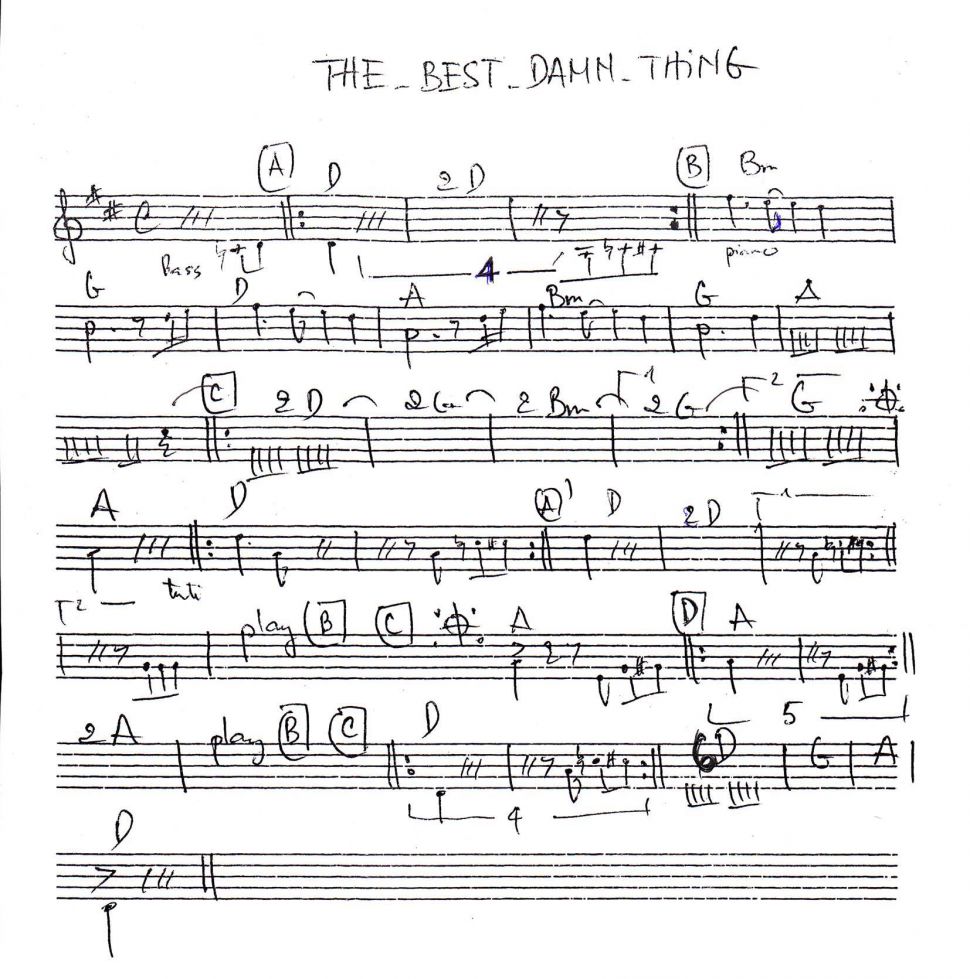 THE_BEST_DAMN_THING
A D 2 D B Bm
C
Bass 4 piano
G D A Bm G A
C 2 D 2 G 2 Bm 1 2 G 2 G
A D A 1 D 2 D 1
tuti
2
play B C A D A
5
2 A play B C D 6 D G A
4
D